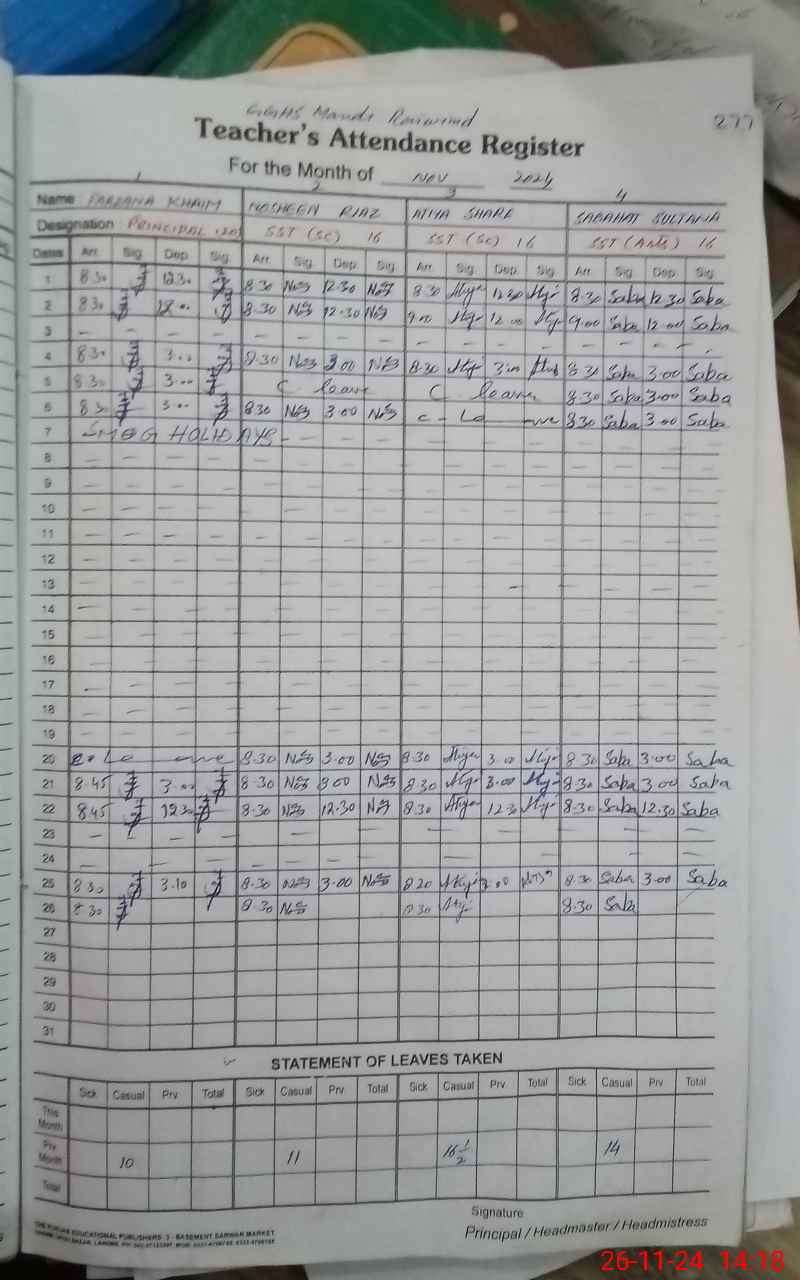 GGHS Mandi
277
Teacher's Attendance Register
For the Month of Nov 2024
1 2 3 4
Name: FARZANA KHAIM NOSHEEN RIAZ ATIYA SHARE SABAHAT SULTANA
Designation: PRINCIPAL SST (SC) 16 SST (SC) 16 SST (Arts) 16
Dates Arr. Sig. Dep. Sig. Arr. Sig. Dep. Sig. Arr. Sig. Dep. Sig. Arr. Sig. Dep. Sig.
1 8.30 12.30 8.30 Nos 12.30 Nos 8.30 Atiya 12.30 Atiya 8.30 Saba 12.30 Saba
2 8.30 12.00 8.30 Nos 12.30 Nos 9.00 Atiya 12.00 Atiya 9.00 Saba 12.00 Saba
3 – – – – – – – – – – – – – – – –
4 8.30 3.00 8.30 Nos 3.00 Nos 8.30 Atiya 3.00 8.30 Saba 3.00 Saba
5 8.30 3.00 C. leave C. leave 8.30 Saba 3.00 Saba
6 8.30 3.00 8.30 Nos 3.00 Nos c - Leave 8.30 Saba 3.00 Saba
7 SMOG HOLIDAYS – – – – – – – – – – –
8 – – – – – – – – – – – – – – – –
9 – – – – – – – – – – – – – – – –
10 – – – – – – – – – – – – – – – –
11 – – – – – – – – – – – – – – – –
12 – – – – – – – – – – – – – – – –
13 – – – – – – – – – – – – – – – –
14 – – – – – – – – – – – – – – – –
15 – – – – – – – – – – – – – – – –
16 – – – – – – – – – – – – – – – –
17 – – – – – – – – – – – – – – – –
18 – – – – – – – – – – – – – – – –
19 – – – – – – – – – – – – – – – –
20 c. Leave 8.30 Nos 3.00 Nos 8.30 Atiya 3.00 Atiya 8.30 Saba 3.00 Saba
21 8.45 3.00 8.30 Nos 3.00 Nos 8.30 Atiya 3.00 Atiya 8.30 Saba 3.00 Saba
22 8.45 12.30 8.30 Nos 12.30 Nos 8.30 Atiya 12.30 Atiya 8.30 Saba 12.30 Saba
23 – – – – – – – – – – – – – – – –
24 – – – – – – – – – – – – – – – –
25 8.30 3.10 8.30 Nos 3.00 Nos 8.20 Atiya 3.00 8.30 Saba 3.00 Saba
26 8.30 8.30 Nos 8.30 Atiya 8.30 Saba
27
28
29
30
31
STATEMENT OF LEAVES TAKEN
Sick Casual Prv Total Sick Casual Prv Total Sick Casual Prv Total Sick Casual Prv Total
This Month
Prv Month 10 11 16 1/2 14
Total
Signature
Principal / Headmaster / Headmistress
EDUCATIONAL PUBLISHERS 3 - BASEMENT SARWAR MARKET
26-11-24 14:18